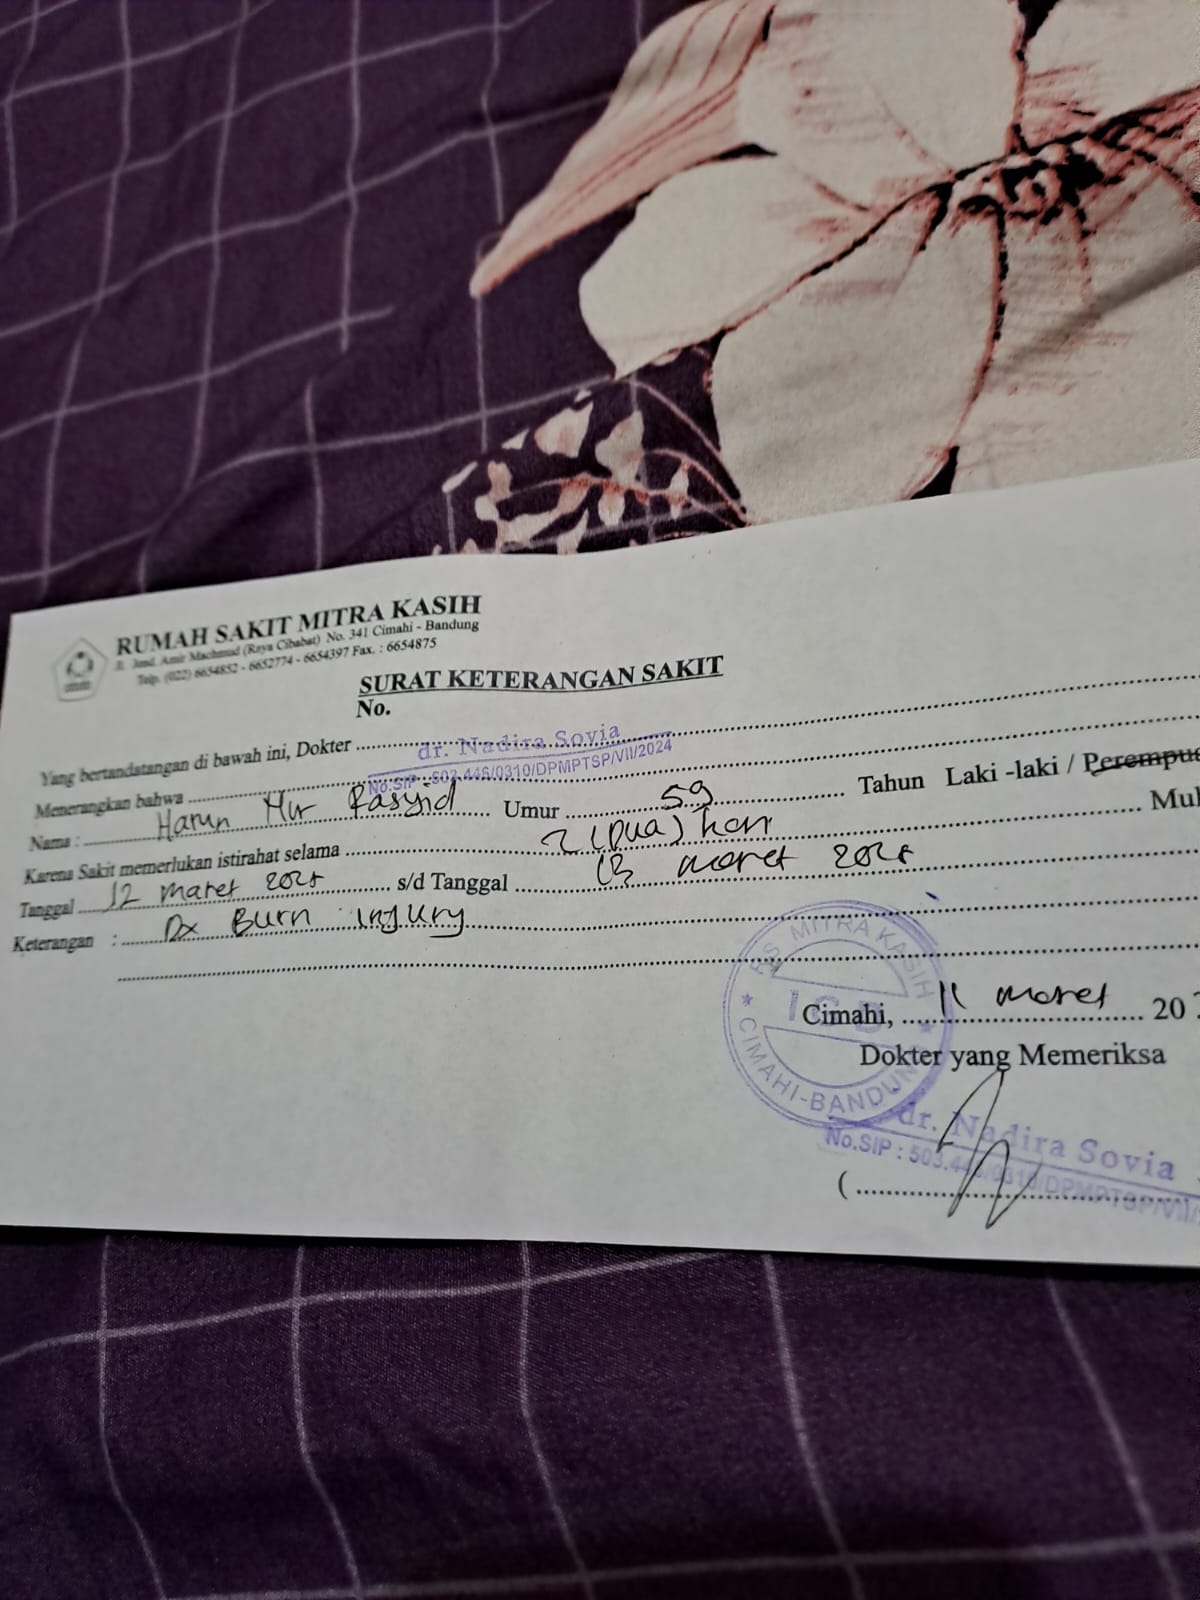 RUMAH SAKIT MITRA KASIH
Jl. Jend. Amir Machmud (Raya Cibabat) No. 341 Cimahi - Bandung
Telp. (022) 6654852 - 6652774 - 6654397 Fax. : 6654875
SURAT KETERANGAN SAKIT
No.
Yang bertandatangan di bawah ini, Dokter
dr. Nadira Sovia
No.SIP : 503.446/0310/DPMPTSP/VII/2024
Menerangkan bahwa
Nama : Harun Nur Rasyid Umur 59 Tahun Laki -laki / Perempua
Karena Sakit memerlukan istirahat selama 2 (Dua) hari Mul
Tanggal 12 maret 2025 s/d Tanggal 13 maret 2025
Keterangan : Dx Burn injury
RS MITRA KASIH
IGD
CIMAHI-BANDUNG
Cimahi, 11 maret 20
Dokter yang Memeriksa
dr. Nadira Sovia
No.SIP : 503.446/0310/DPMPTSP/VII/
(